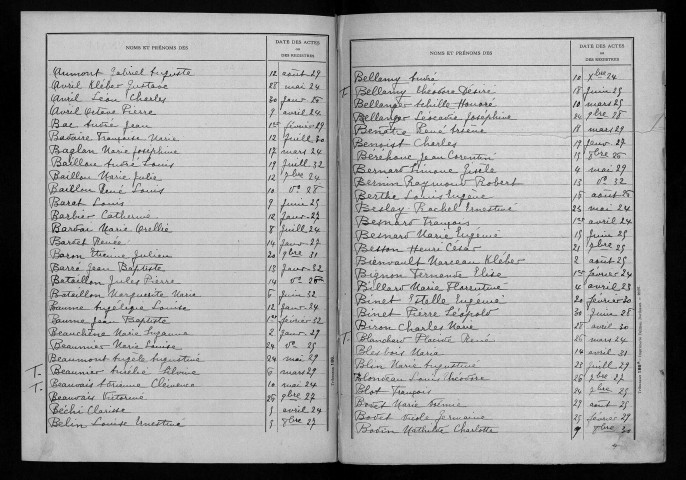 NOMS ET PRÉNOMS DES
DATE DES ACTES
OU
DES REGISTRES
Aumont Gabriel Auguste 12 août 29
Avril Kléber Gustave 28 mai 24
Avril Léon Charles 30 janv 26
Avril Octave Pierre 9 avril 24
Bac André Jean 1er février 29
Badaire Françoise Marie 12 Juill 30
Baglan Marie Joséphine 17 mars 24
Baillon André Louis 19 Juill 32
Baillon Marie Julie 12 24
Baillon René Louis 10 do 28
Barat Louis 9 Juin 25
Barbier Catherine 12 Janv 27
Marie 8 Juill 24
Bardet Renée 14 Janv 27
Baron Etienne Julien 20 9bre 31
Barré Jean Baptiste 13 Janv 32
Bataillon Jules Pierre 14 do
Bataillon Marguerite Marie 6 Juin 32
Baume Angélique Louise 12 Janv 34
Baume Jean Baptiste 1er février 32
Beauchêne Marie Suzanne 2 Janv 29
Beaumier Marie Louise 24 do 25
Beaumont Angèle Augustine 24 mai 29
T. Beaumier Amélie 6 mars 29
T. Beauvais Adrienne Clémence 10 mai 24
Beauvais Victorine 26 9bre 27
Béchi Clarisse 5 avril 24
Belin Louise Ernestine 5 8bre 27
NOMS ET PRÉNOMS DES
DATE DES ACTES
OU
DES REGISTRES
Bellamy André 10 Xbre 24
T. Bellamy Théodore Désiré 18 Juin 25
Bellanger Achille Honoré 10 mars 25
Bellanger Léocadie Joséphine 24 9bre 28
René Arsène 18 mars 29
Benoist Charles 19 Janv 27
Jean Corentin 15 9bre
Bernard Simone Gisèle 4 mai 29
Bernin Raymond Robert 13 do 32
Berthe Louis Eugène 16 août
Beslay Rachel Ernestine 23 mai 24
Besnard François 1er avril 24
Besnard Marie Eugénie 15 Juin 25
Besson Henri César 21 9bre 25
Bienvault Marceau Kléber 2 août 25
Bignon Fernande Elise 1er février 24
Billard Marie Florentine 4 avril 23
Binet Estelle Eugénie 20 février 30
Binet Pierre Léopold 30 Juin 28
Biron Charles Marie 28 avril 30
T. Blanchard René 26 mars 24
Maria 14 avril 31
Blin Marie Augustine 23 Juill 29
Blondeau Louis Théodore 26 27
Blot François 24 25
Bodet Marie 29 août 25
Bodet Nicole Germaine 25 février 29
Bodin Mathilde Charlotte 9 8bre 30